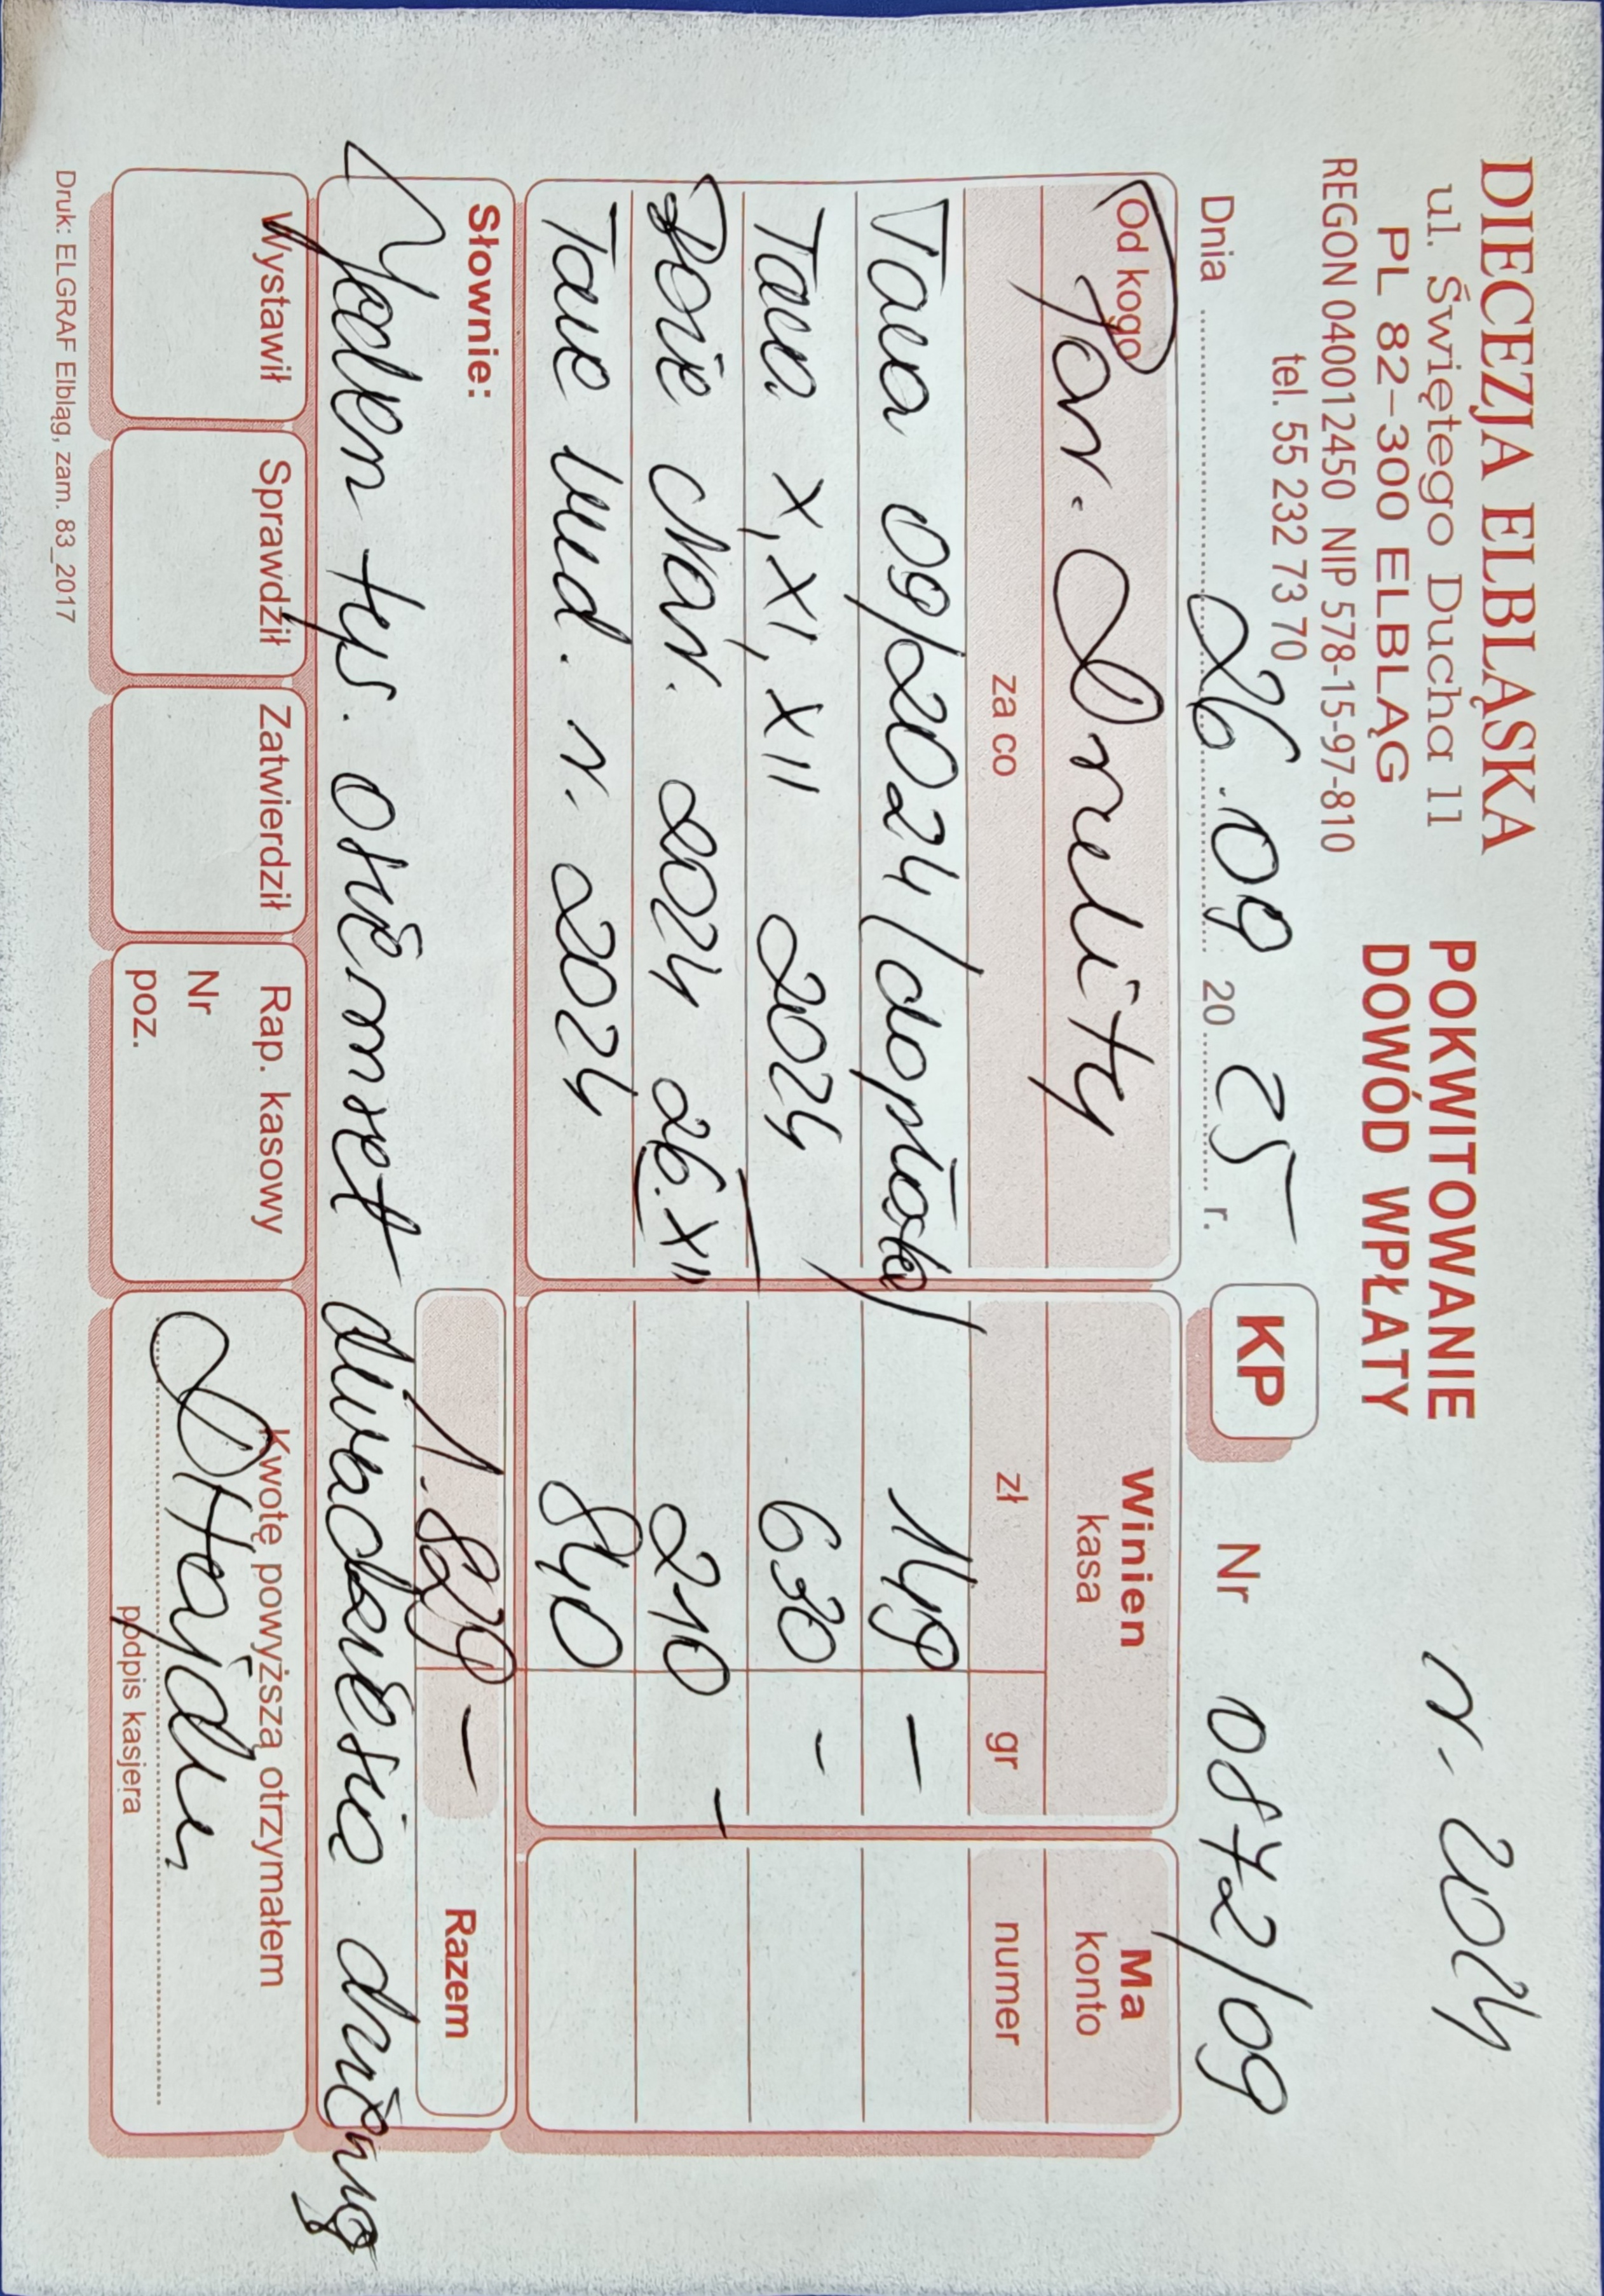 DIECEZJA ELBLĄSKA
ul. Świętego Ducha 11
PL 82-300 ELBLĄG
REGON 040012450 NIP 578-15-97-810
tel. 55 232 73 70
POKWITOWANIE
DOWÓD WPŁATY
r. 2024
Dnia 26.09 2025 r.
KP
Nr 0872/09
Od kogo Par. Drelity
Winien
kasa
Ma
konto
za co
zł
gr
numer
Taca 09/2024 /dopłata/ 149 -
Taca X, XI, XII 2024 630 -
Boże Nar. 2024 26.XII 210 -
Tace Sem. r. 2024 840
Słownie: 1.829 - Razem
Jeden tys. osiemset dwadzieścia dziewięć
Wystawił
Sprawdził
Zatwierdził
Rap. kasowy
Nr
poz.
Kwotę powyższą otrzymałem
podpis kasjera
Druk: ELGRAF Elbląg, zam. 83_2017